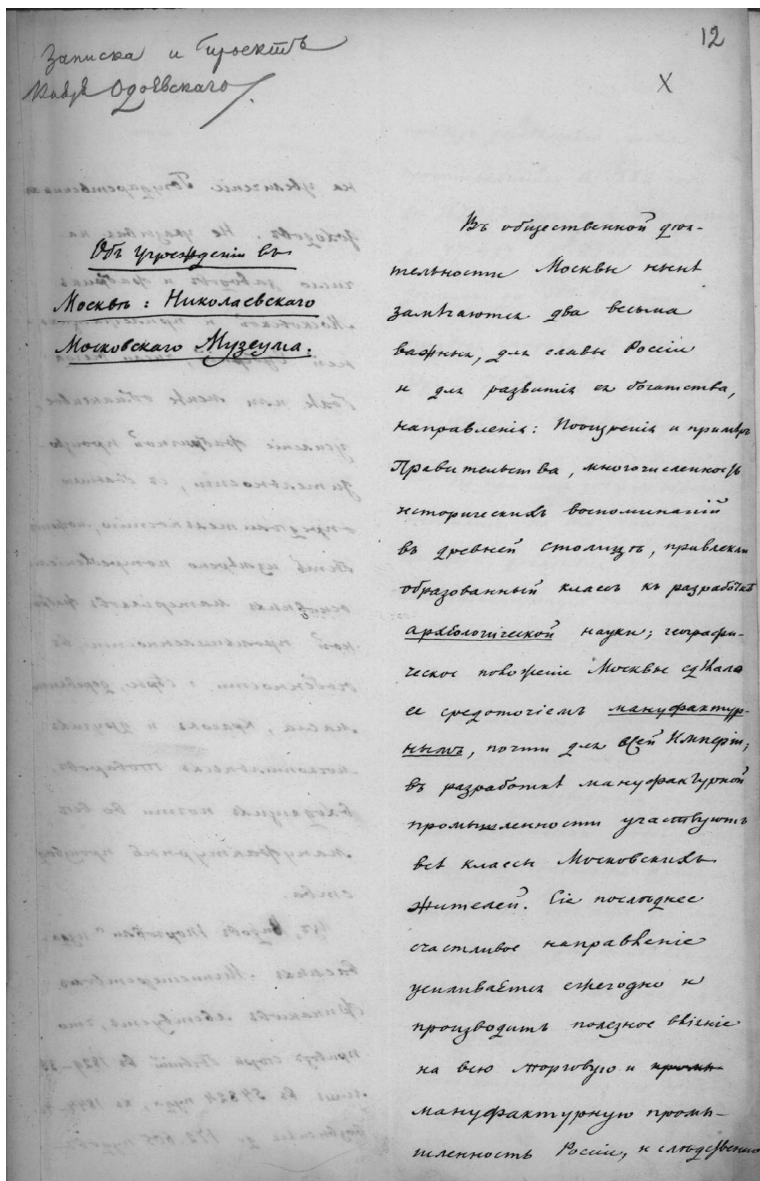 12
Записка и Проектъ
Князя Одоевскаго
X
Объ учрежденіи въ
Москвѣ: Николаевскаго
Московскаго Музеума.
Въ общественной дѣя-
тельности Москвы нынѣ
замѣчаются два весьма
важныя, для славы Россіи
и для развитія ея богатства,
направленія: Поощренія и примѣръ
Правительства, многочисленность
историческихъ воспоминаній
въ древней столицѣ, привлекли
образованный классъ къ разработкѣ
археологической науки; географи-
ческое положеніе Москвы сдѣлало
ее средоточіемъ мануфактур-
нымъ, почти для всей Имперіи;
въ разработкѣ мануфактурной
промышленности участвуютъ
всѣ классы Московскихъ
жителей. Сіе послѣднее
счастливое направленіе
усиливается ежегодно и
производитъ полезное вліяніе
на всю торговую и промы-
мануфактурную промы-
шленность Россіи, и слѣдственно